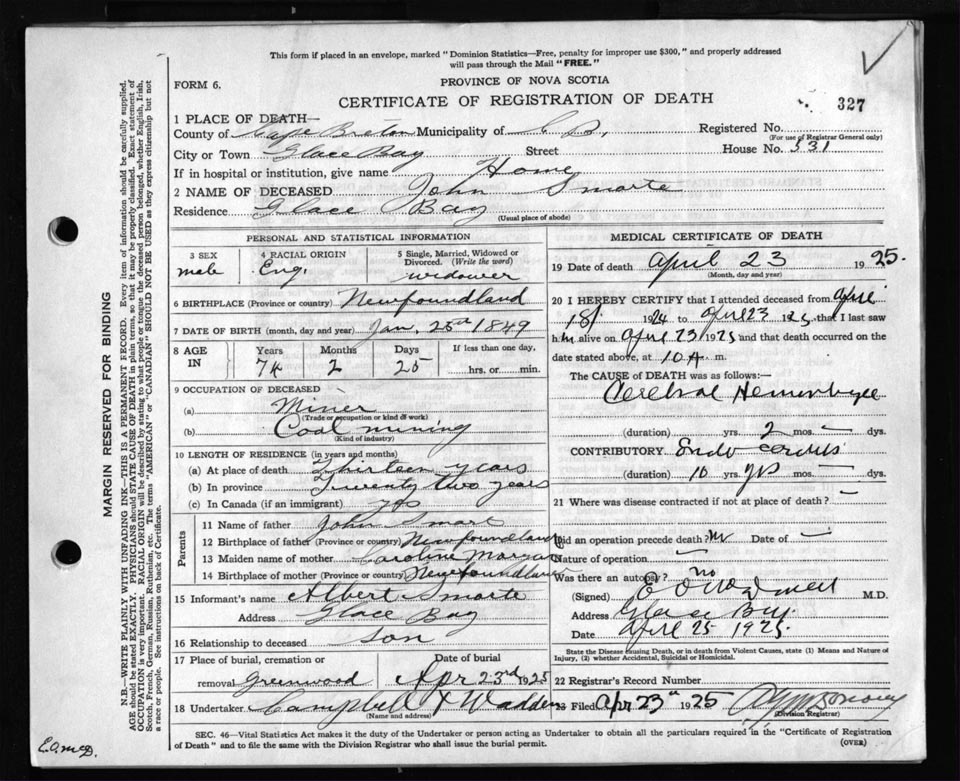 This form if placed in an envelope, marked "Dominion Statistics—Free, penalty for improper use $300," and properly addressed
will pass through the Mail "FREE."
FORM 6.
PROVINCE OF NOVA SCOTIA
CERTIFICATE OF REGISTRATION OF DEATH
327
1 PLACE OF DEATH—
County of Cape Breton Municipality of C B.
Registered No.
(For use of Registrar General only)
City or Town Glace Bay Street House No. 531
If in hospital or institution, give name Home
2 NAME OF DECEASED John Smarte
Residence Glace Bay
(Usual place of abode)
PERSONAL AND STATISTICAL INFORMATION
3 SEX male
4 RACIAL ORIGIN Eng.
5 Single, Married, Widowed or Divorced. (Write the word) widower
6 BIRTHPLACE (Province or country) Newfoundland
7 DATE OF BIRTH (month, day and year) Jan. 25th 1849
8 AGE IN
Years Months Days If less than one day,
74 2 25 hrs. or min.
9 OCCUPATION OF DECEASED
(a) Miner
(Trade or occupation or kind of work)
(b) Coal mining
(Kind of industry)
10 LENGTH OF RESIDENCE (in years and months)
(a) At place of death Thirteen years
(b) In province Twenty two years
(c) In Canada (if an immigrant)
Parents
11 Name of father John Smart
12 Birthplace of father (Province or country) Newfoundland
13 Maiden name of mother Caroline Morgan
14 Birthplace of mother (Province or country) Newfoundland
15 Informant's name Albert Smarte
Address Glace Bay
16 Relationship to deceased son
17 Place of burial, cremation or removal Greenwood
Date of burial Apr 23rd 1925
18 Undertaker Campbell & Wadden
(Name and address)
MEDICAL CERTIFICATE OF DEATH
19 Date of death April 23 1925.
(Month, day and year)
20 I HEREBY CERTIFY that I attended deceased from April
18 1924 to April 23 1925, that I last saw
him alive on April 23 1925 and that death occurred on the
date stated above, at 10 A m.
The CAUSE of DEATH was as follows:—
Cerebral Hemorrhage
(duration) yrs. 2 mos. — dys.
CONTRIBUTORY Endo carditis
(duration) 10 yrs mos. — dys.
21 Where was disease contracted if not at place of death? —
Did an operation precede death? No Date of —
Nature of operation —
Was there an autopsy? no
(Signed) M.D.
Address Glace Bay
Date April 25 1925.
State the Disease causing Death, or in death from Violent Causes, state (1) Means and Nature of
Injury, (2) whether Accidental, Suicidal or Homicidal.
22 Registrar's Record Number
23 Filed Apr 23 1925
(Division Registrar)
SEC. 46—Vital Statistics Act makes it the duty of the Undertaker or person acting as Undertaker to obtain all the particulars required in the "Certificate of Registration
of Death" and to file the same with the Division Registrar who shall issue the burial permit.
(OVER)
MARGIN RESERVED FOR BINDING
N.B.—WRITE PLAINLY WITH UNFADING INK—THIS IS A PERMANENT RECORD. Every item of information should be carefully supplied.
AGE should be stated EXACTLY. PHYSICIANS should STATE CAUSE OF DEATH in plain terms, so that it may be properly classified. Exact statement of
OCCUPATION is very important. RACIAL ORIGIN will be described by stating to what people or tongue the deceased person belonged, whether English, Irish,
Scotch, French, German, Russian, Ruthenian, etc. The terms "AMERICAN" or "CANADIAN" SHOULD NOT BE USED as they express citizenship but not
a race or people. See instructions on back of Certificate.